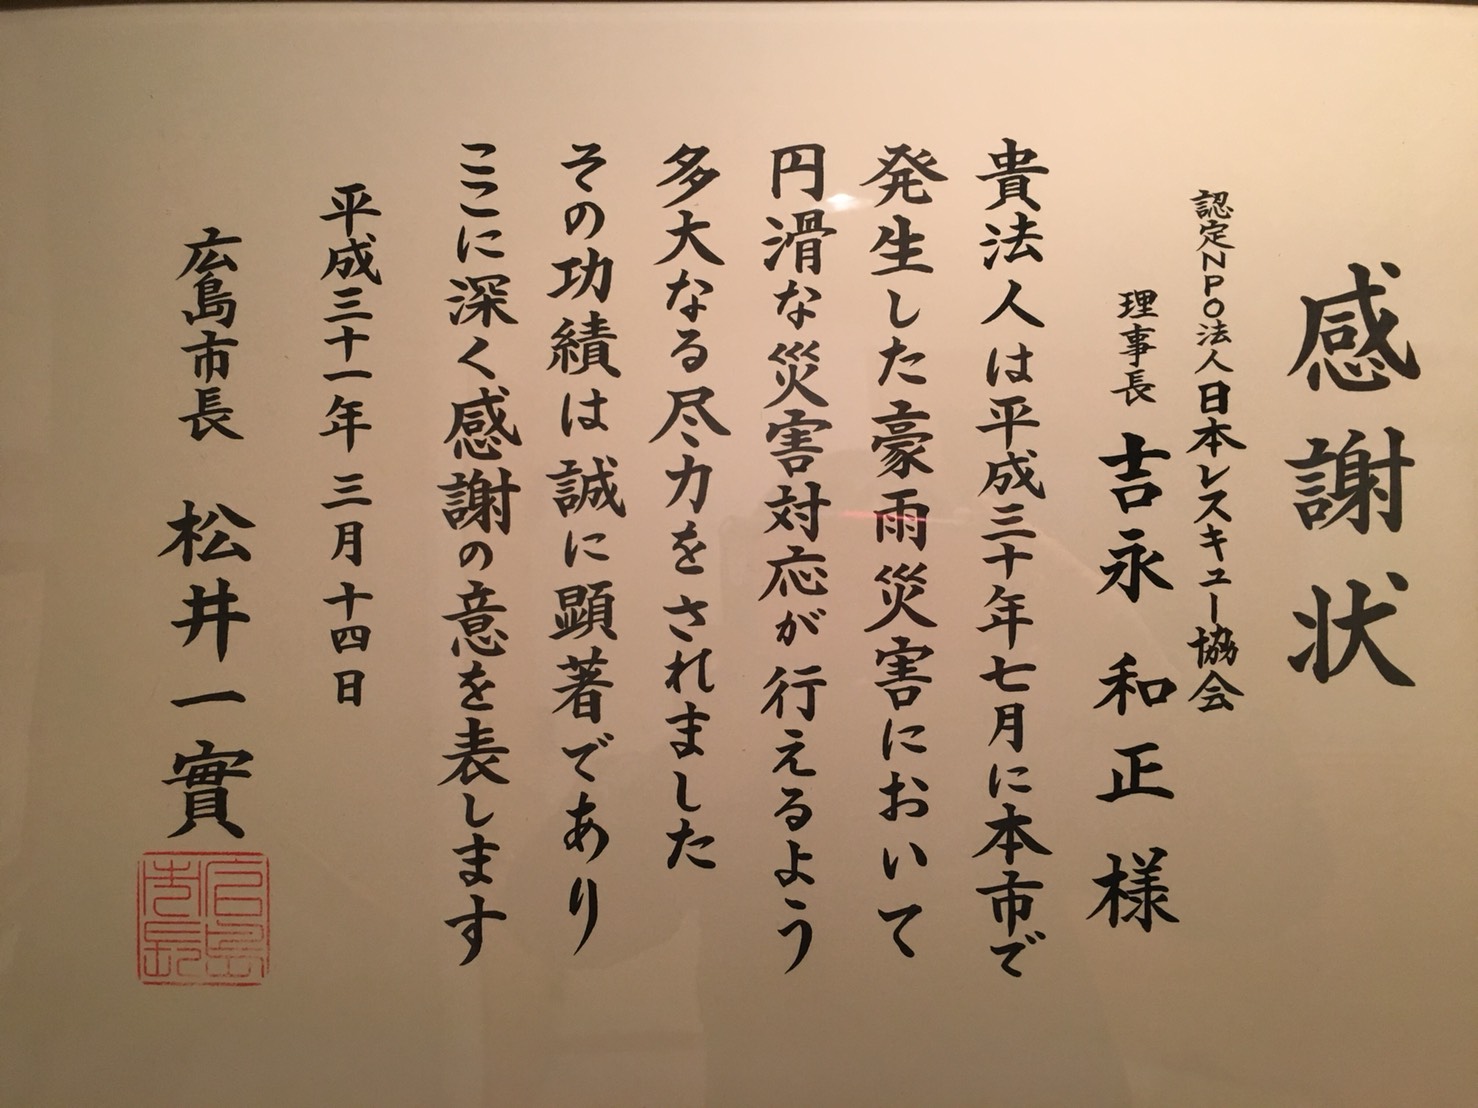 感謝状
認定NPO法人日本レスキュー協会
理事長 吉永和正様
貴法人は平成三十年七月に本市で
発生した豪雨災害において
円滑な災害対応が行えるよう
多大なる尽力をされました
その功績は誠に顕著であり
ここに深く感謝の意を表します
平成三十一年三月十四日
広島市長 松井一實
広島市長